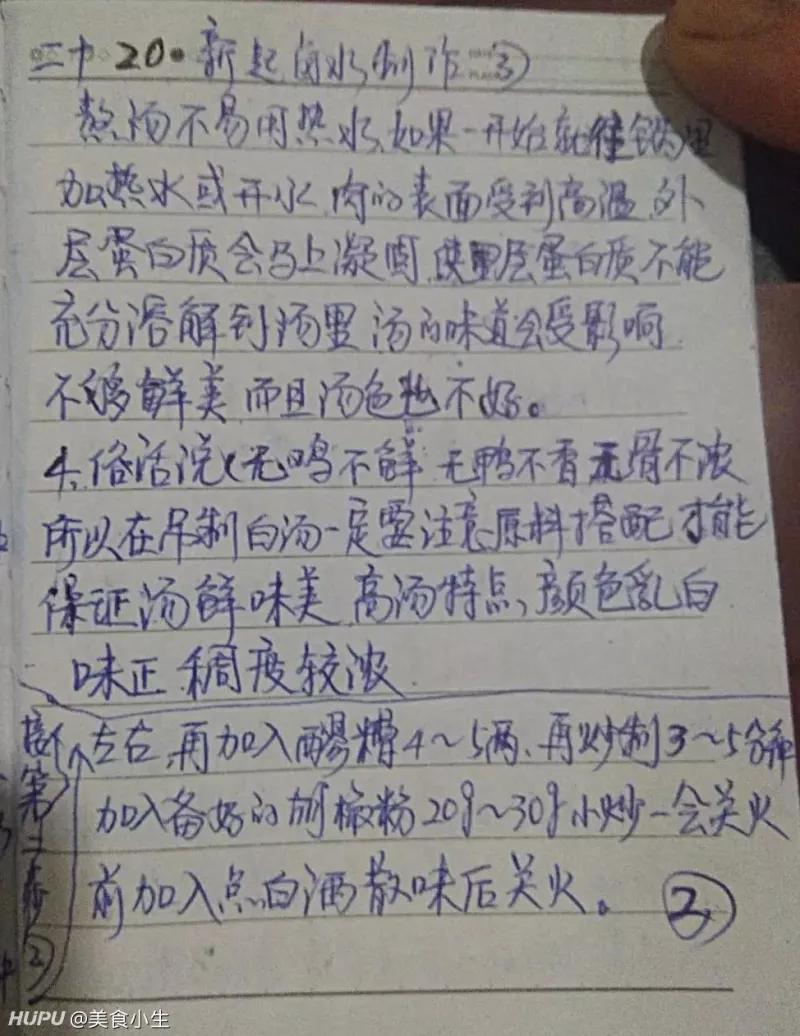 二十20.新起卤水制作③
熬汤不易用热水,如果一开始就往锅里
加热水或开水,肉的表面受到高温,外
层蛋白质会马上凝固,使里层蛋白质不能
充分溶解到汤里 汤的味道会受影响
不够鲜美 而且汤色也不好。
4、俗话说(无鸡不鲜 无鸭不香 无骨不浓
所以在吊制白汤一定要注意原料搭配 才能
保证汤鲜味美 高汤特点,颜色乳白
味正 稠度较浓
接下第二卷②
左右,再加入醪糟4~5两,再炒制3~5分钟
加入备好的胡椒粉20g~30g小炒一会关火
前加入点白酒散味后关火。 ②
HUPU @美食小生